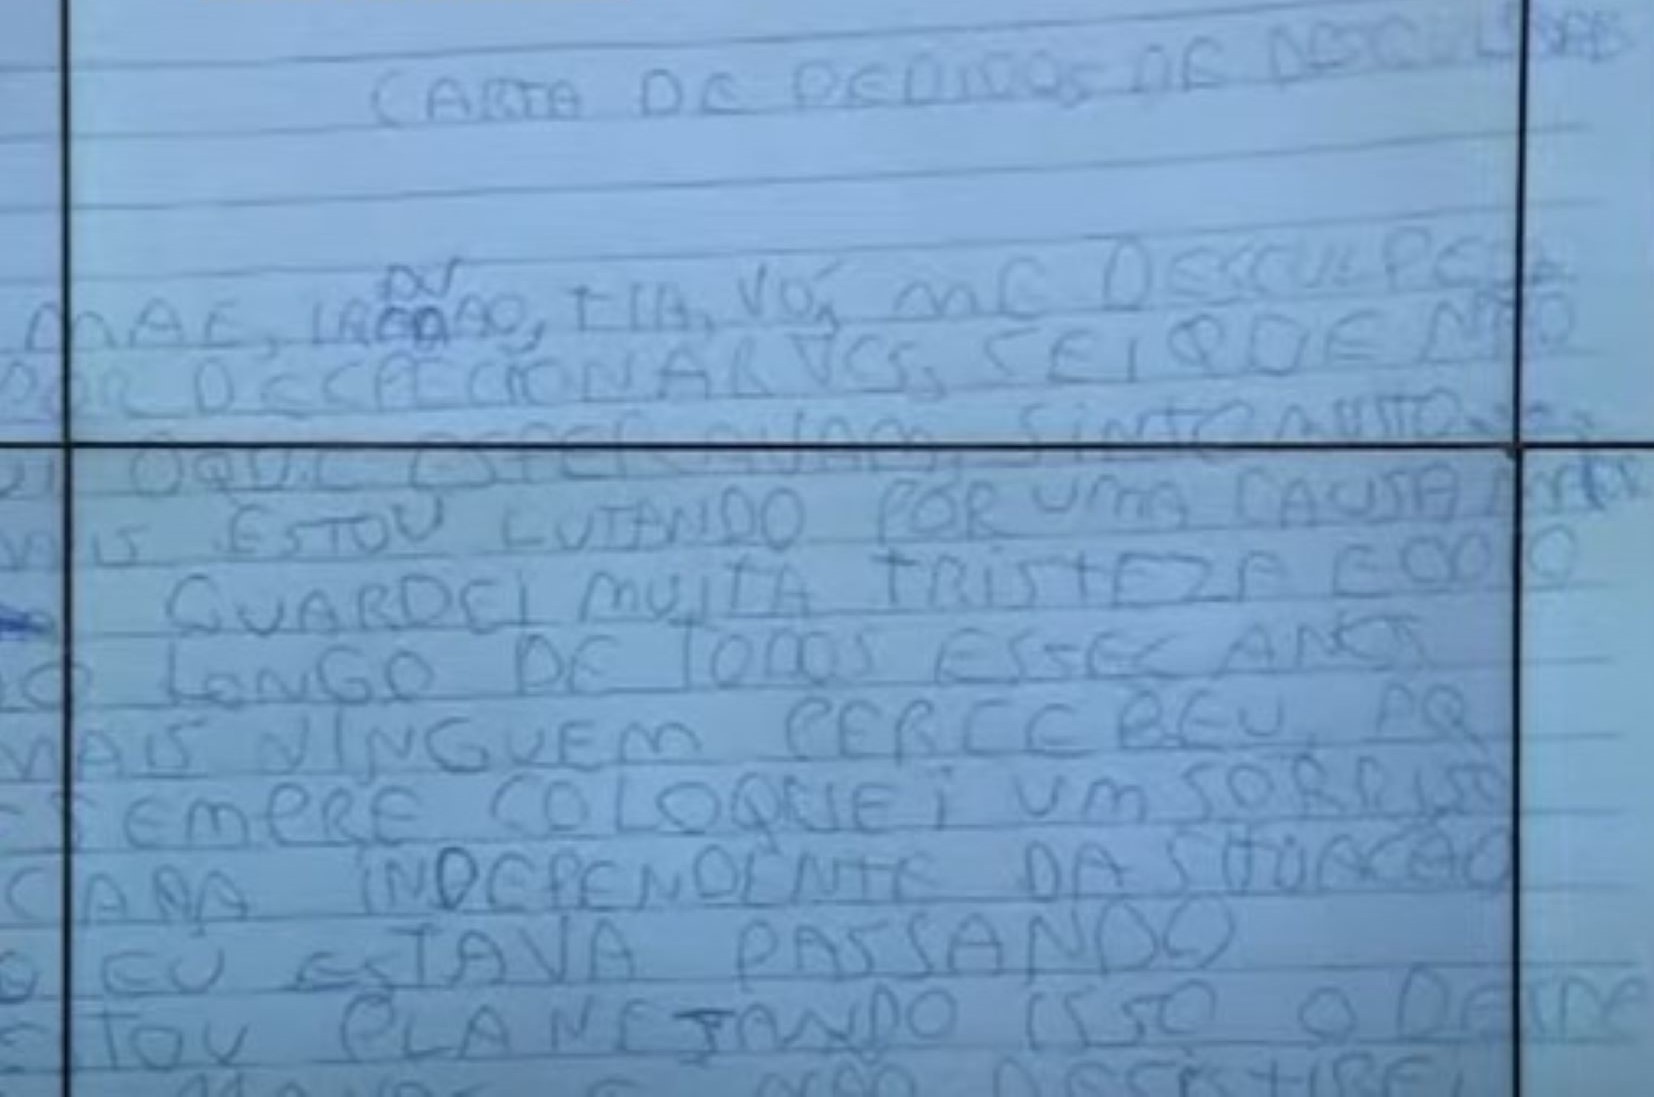 CARTA DE PEDIDOS DE DESCULPAS
MÃE, IRMÃO, TIA, VÓ, ME DESCCULPEM
POR DECEPECIONAR VCS, SEI QUE NÃO
OQUE ESPERAVAM, SINTO MUITO
MAIS ESTOU LUTANDO POR UMA CAUSA
GUARDEI MUITA TRISTEZA E ODIO
AO LONGO DE TODOS ESSES ANOS
MAIS NINGUEM PERCEBEU, PQ
SEMPRE COLOQUEI UM SORRISO
CARA INDEPENDENTE DA SITUACAO
EU ESTAVA PASSANDO
ESTOU PLANEJANDO ISSO O DESDE
E NÃO DESISTIREI